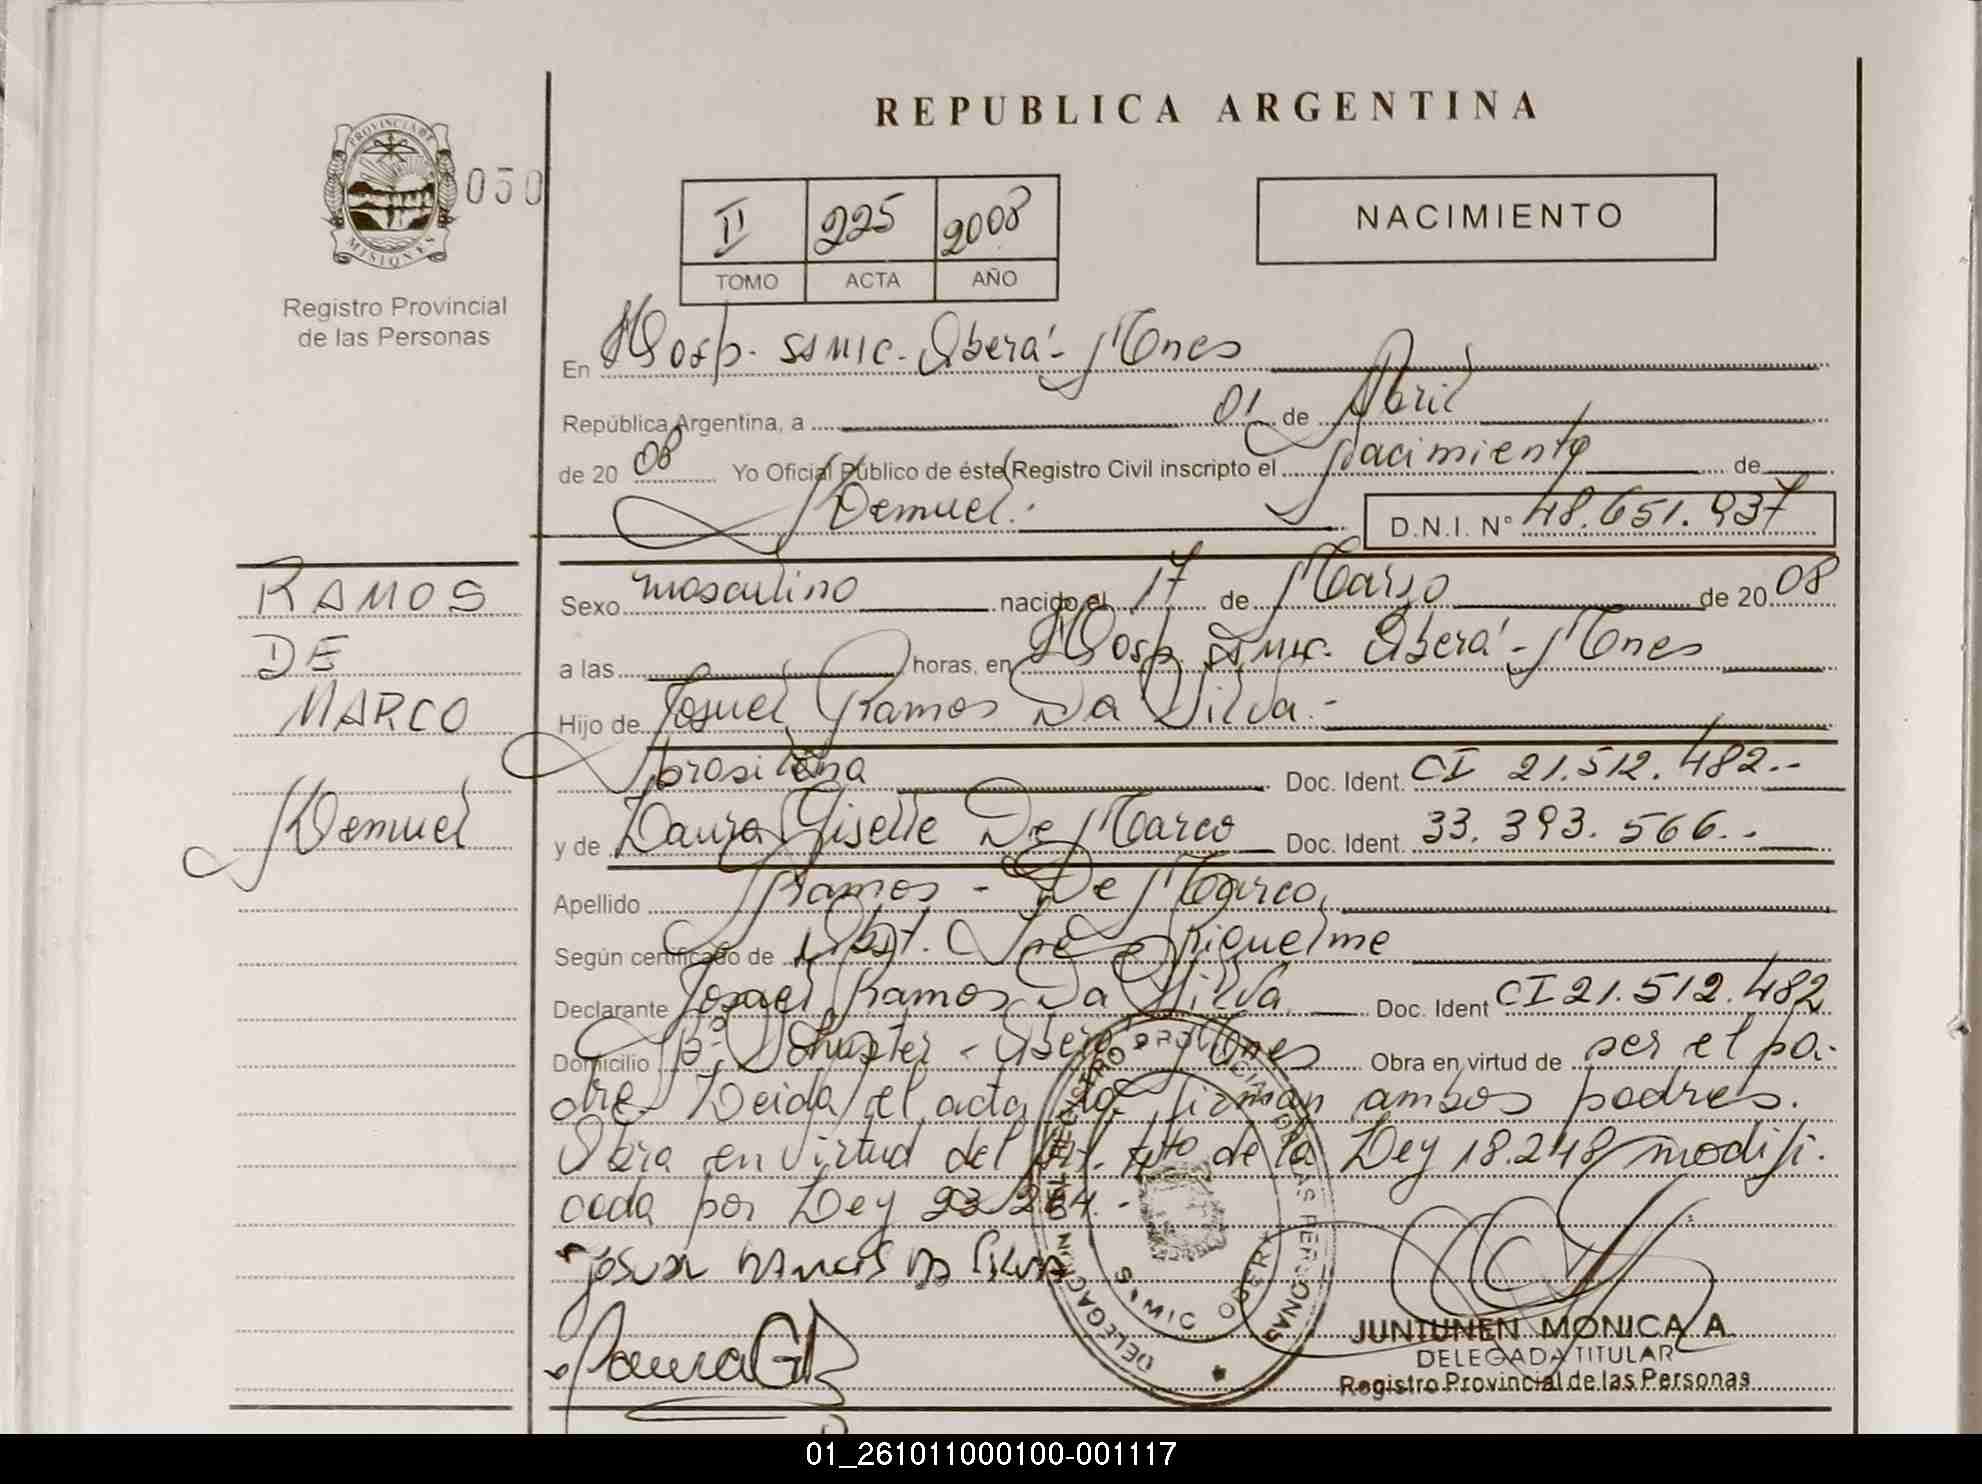 REPUBLICA ARGENTINA
PROVINCIA DE
MISIONES
030
Registro Provincial
de las Personas
II 225 2008
TOMO ACTA AÑO
NACIMIENTO
En Hosp. SAMIC. Oberá - Mnes
República Argentina, a 01 de Abril
de 20 08 Yo Oficial Público de éste Registro Civil inscripto el Nacimiento de
Kemuel.-
D.N.I. N° 48.651.937
RAMOS
DE
MARCO
Kemuel
Sexo masculino nacido el 17 de Marzo de 20 08
a las horas, en Hosp. SAMIC. Oberá - Mnes
Hijo de Josuel Ramos Da Silva.-
brasileña Doc. Ident. CI 21.512.482.-
y de Laura Giselle De Marco Doc. Ident. 33.393.566.-
Apellido Ramos - De Marco
Según certificado de Obst. Riquelme
Declarante Josuel Ramos Da Silva Doc. Ident CI 21.512.482
Domicilio Bº Schuster - Oberá Mnes Obra en virtud de ser el pa-
dre. Leida el acta la firman ambos padres.
Obra en virtud del Art. 4to de la Ley 18.248 modifi-
cada por Ley 23.264.-
Josuel Ramos Da Silva
Laura G
DELEGACION REGISTRO PROVINCIAL DE LAS PERSONAS
SAMIC OBERA
JUNTUNEN MONICA A.
DELEGADA TITULAR
Registro Provincial de las Personas
01_261011000100-001117